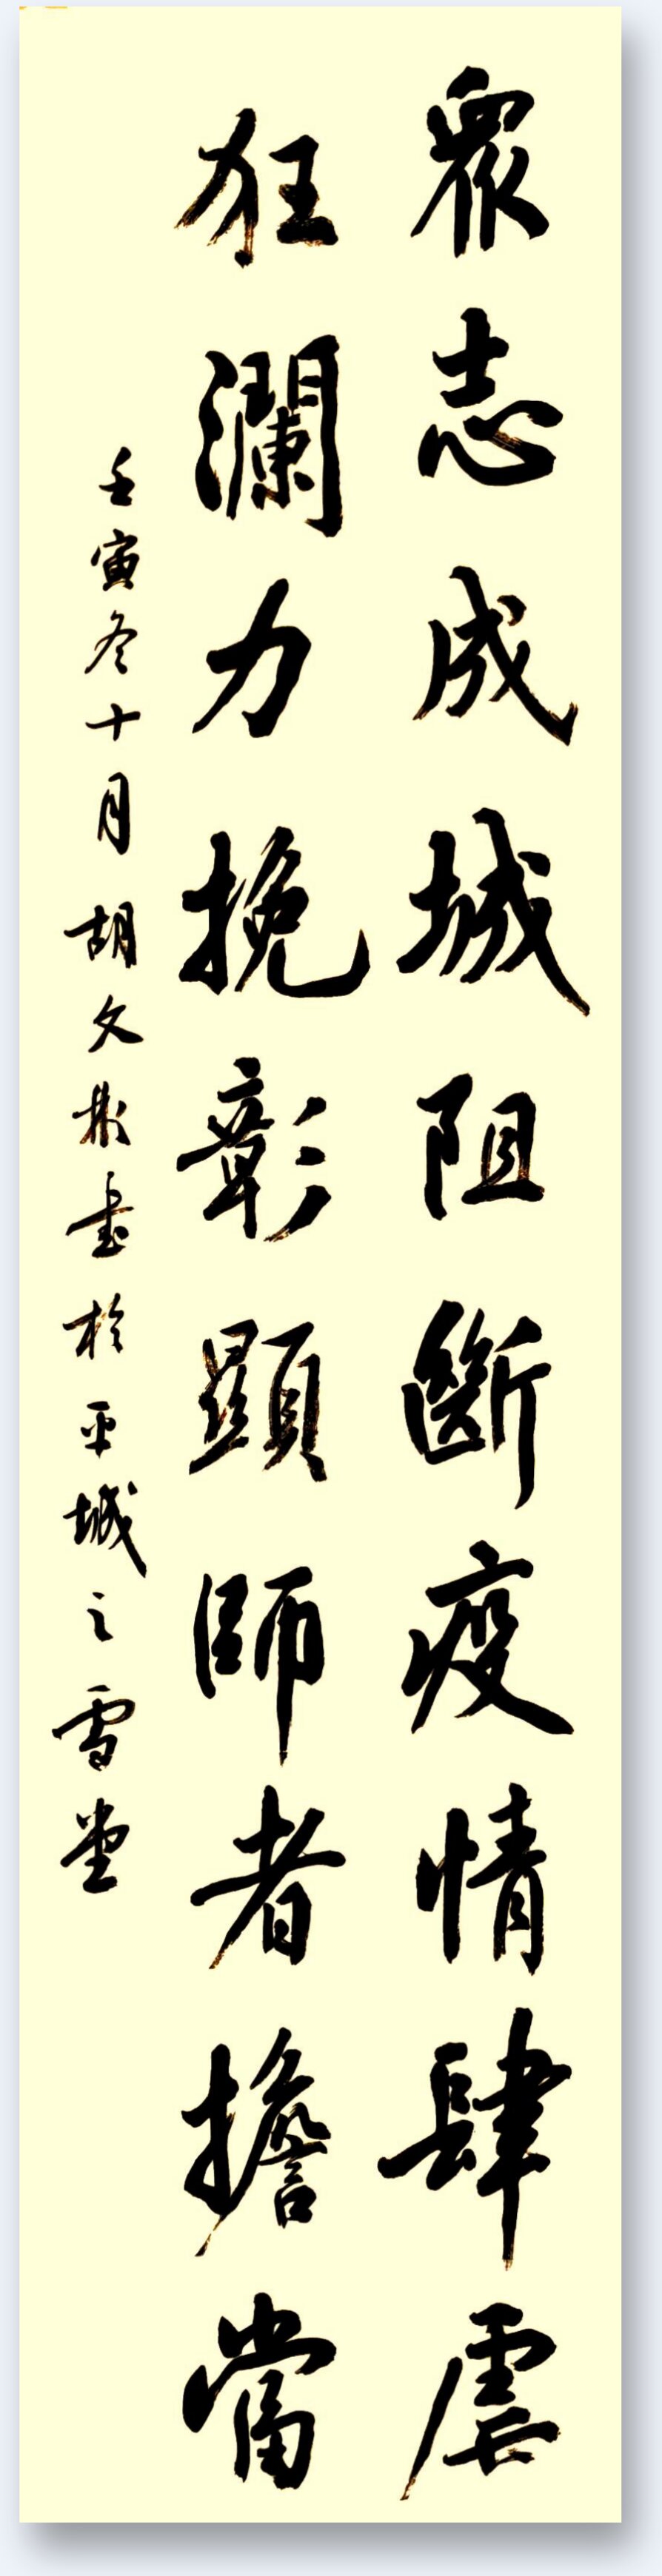 眾志成城阻斷疫情肆虐
狂瀾力挽彰顯師者擔當
壬寅冬十月胡文彬書於平城之雪堂